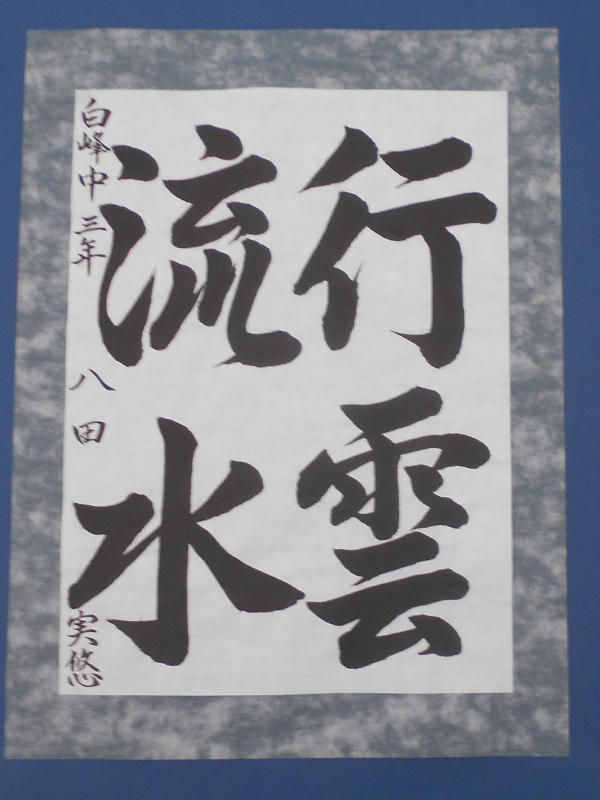 行雲
流水
白峰中三年 八田 実悠